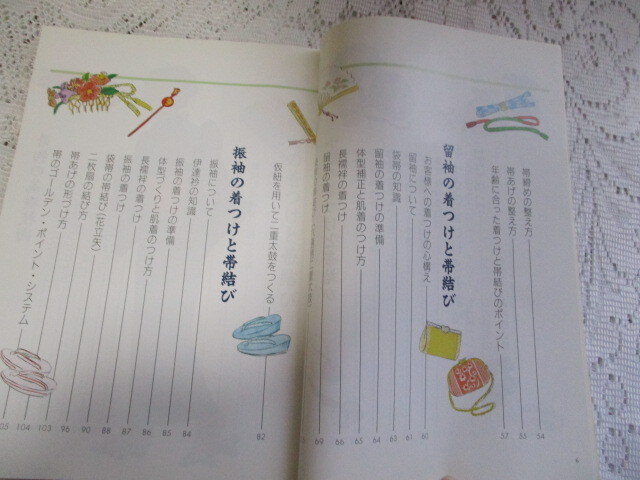 帯締めの整え方 54
帯あげの整え方 55
年齢に合った着つけと帯結びのポイント 57
留袖の着つけと帯結び
お客様への着つけの心構え 60
留袖について 61
袋帯の知識 63
留袖の着つけの準備 64
体型補正と肌着のつけ方 65
長襦袢の着つけ 66
留袖の着つけ 69
仮紐を用いて二重太鼓をつくる 82
振袖の着つけと帯結び
振袖について 84
伊達衿の知識 85
振袖の着つけの準備 86
体型づくりと肌着のつけ方 87
長襦袢の着つけ 88
振袖の着つけ 90
袋帯の帯結び(花立矢) 96
二枚扇の結び方 103
帯あげの形づけ方 104
帯のゴールデン・ポイント・システム 105